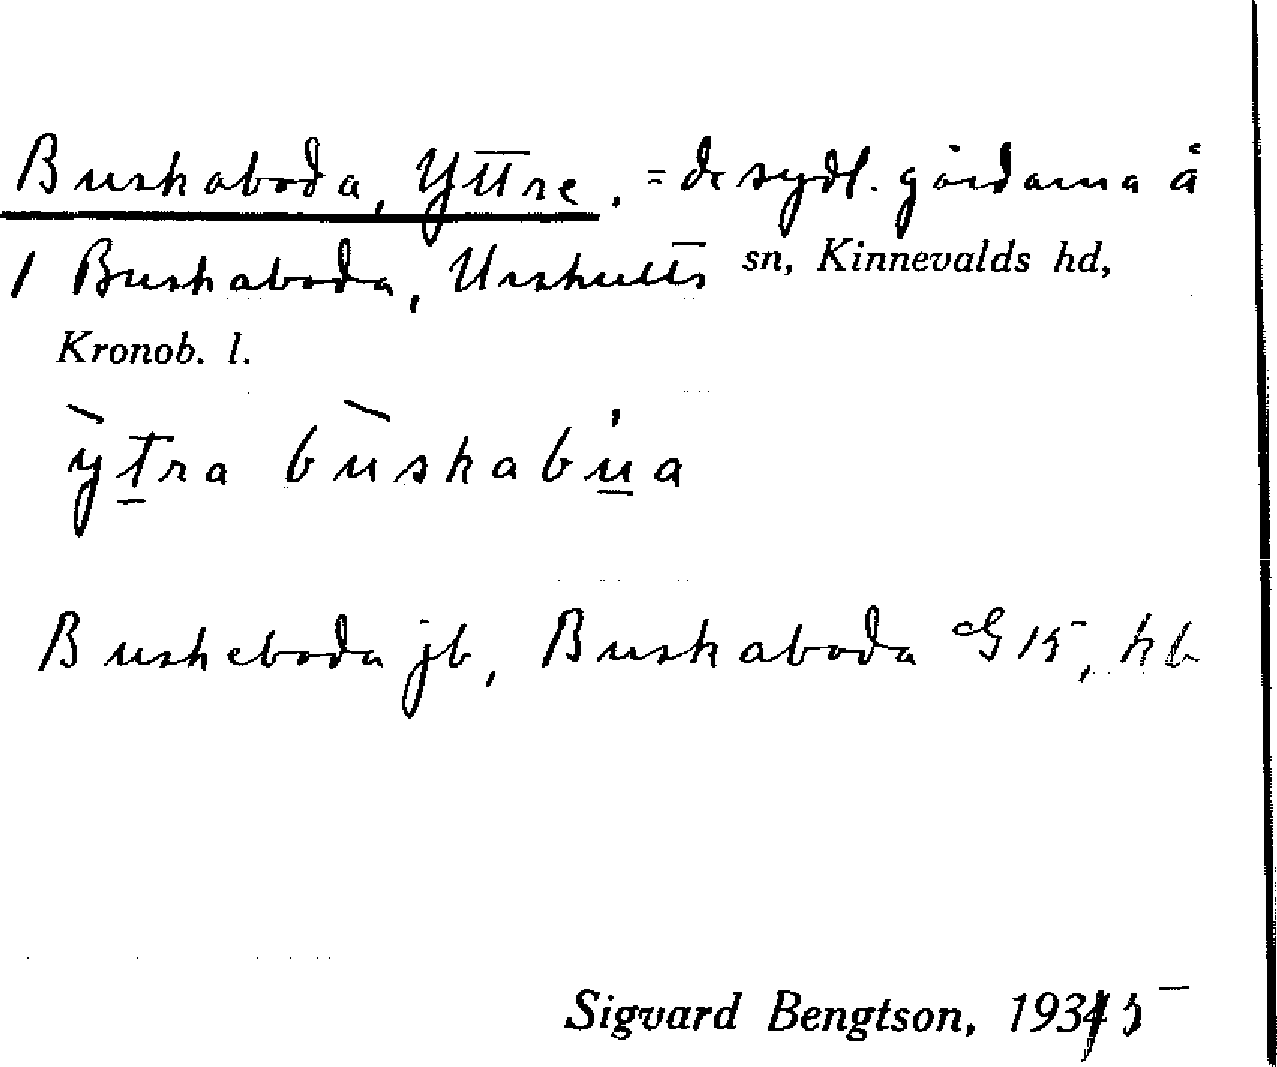 Buskaboda, Yttre. = de sydl. gårdarna å
1 Buskaboda, Urshults sn, Kinnevalds hd,
Kronob. l.
ỳtra bùskabu̍a
Buskeboda jb, Buskaboda G 15, kb
Sigvard Bengtson, 1935